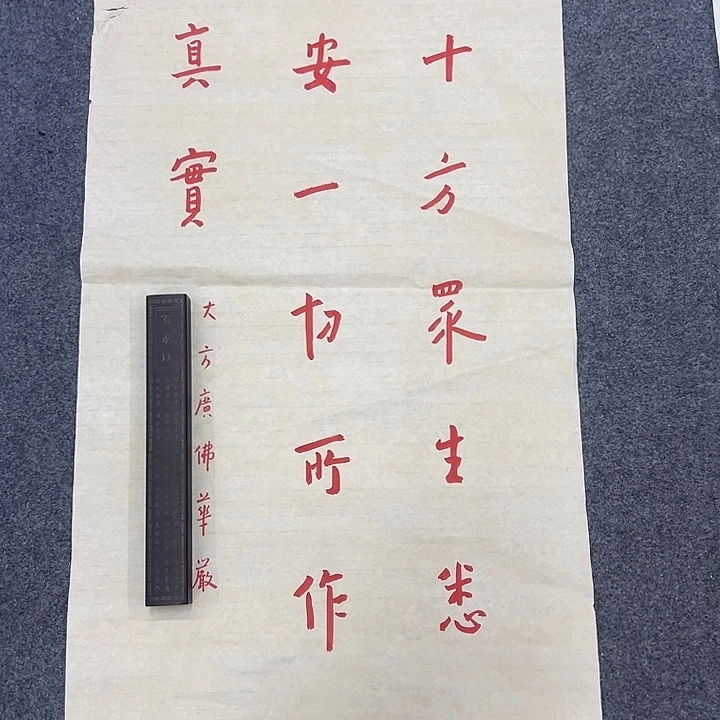 十方眾生悉
安一切所作
真實
大方廣佛華嚴